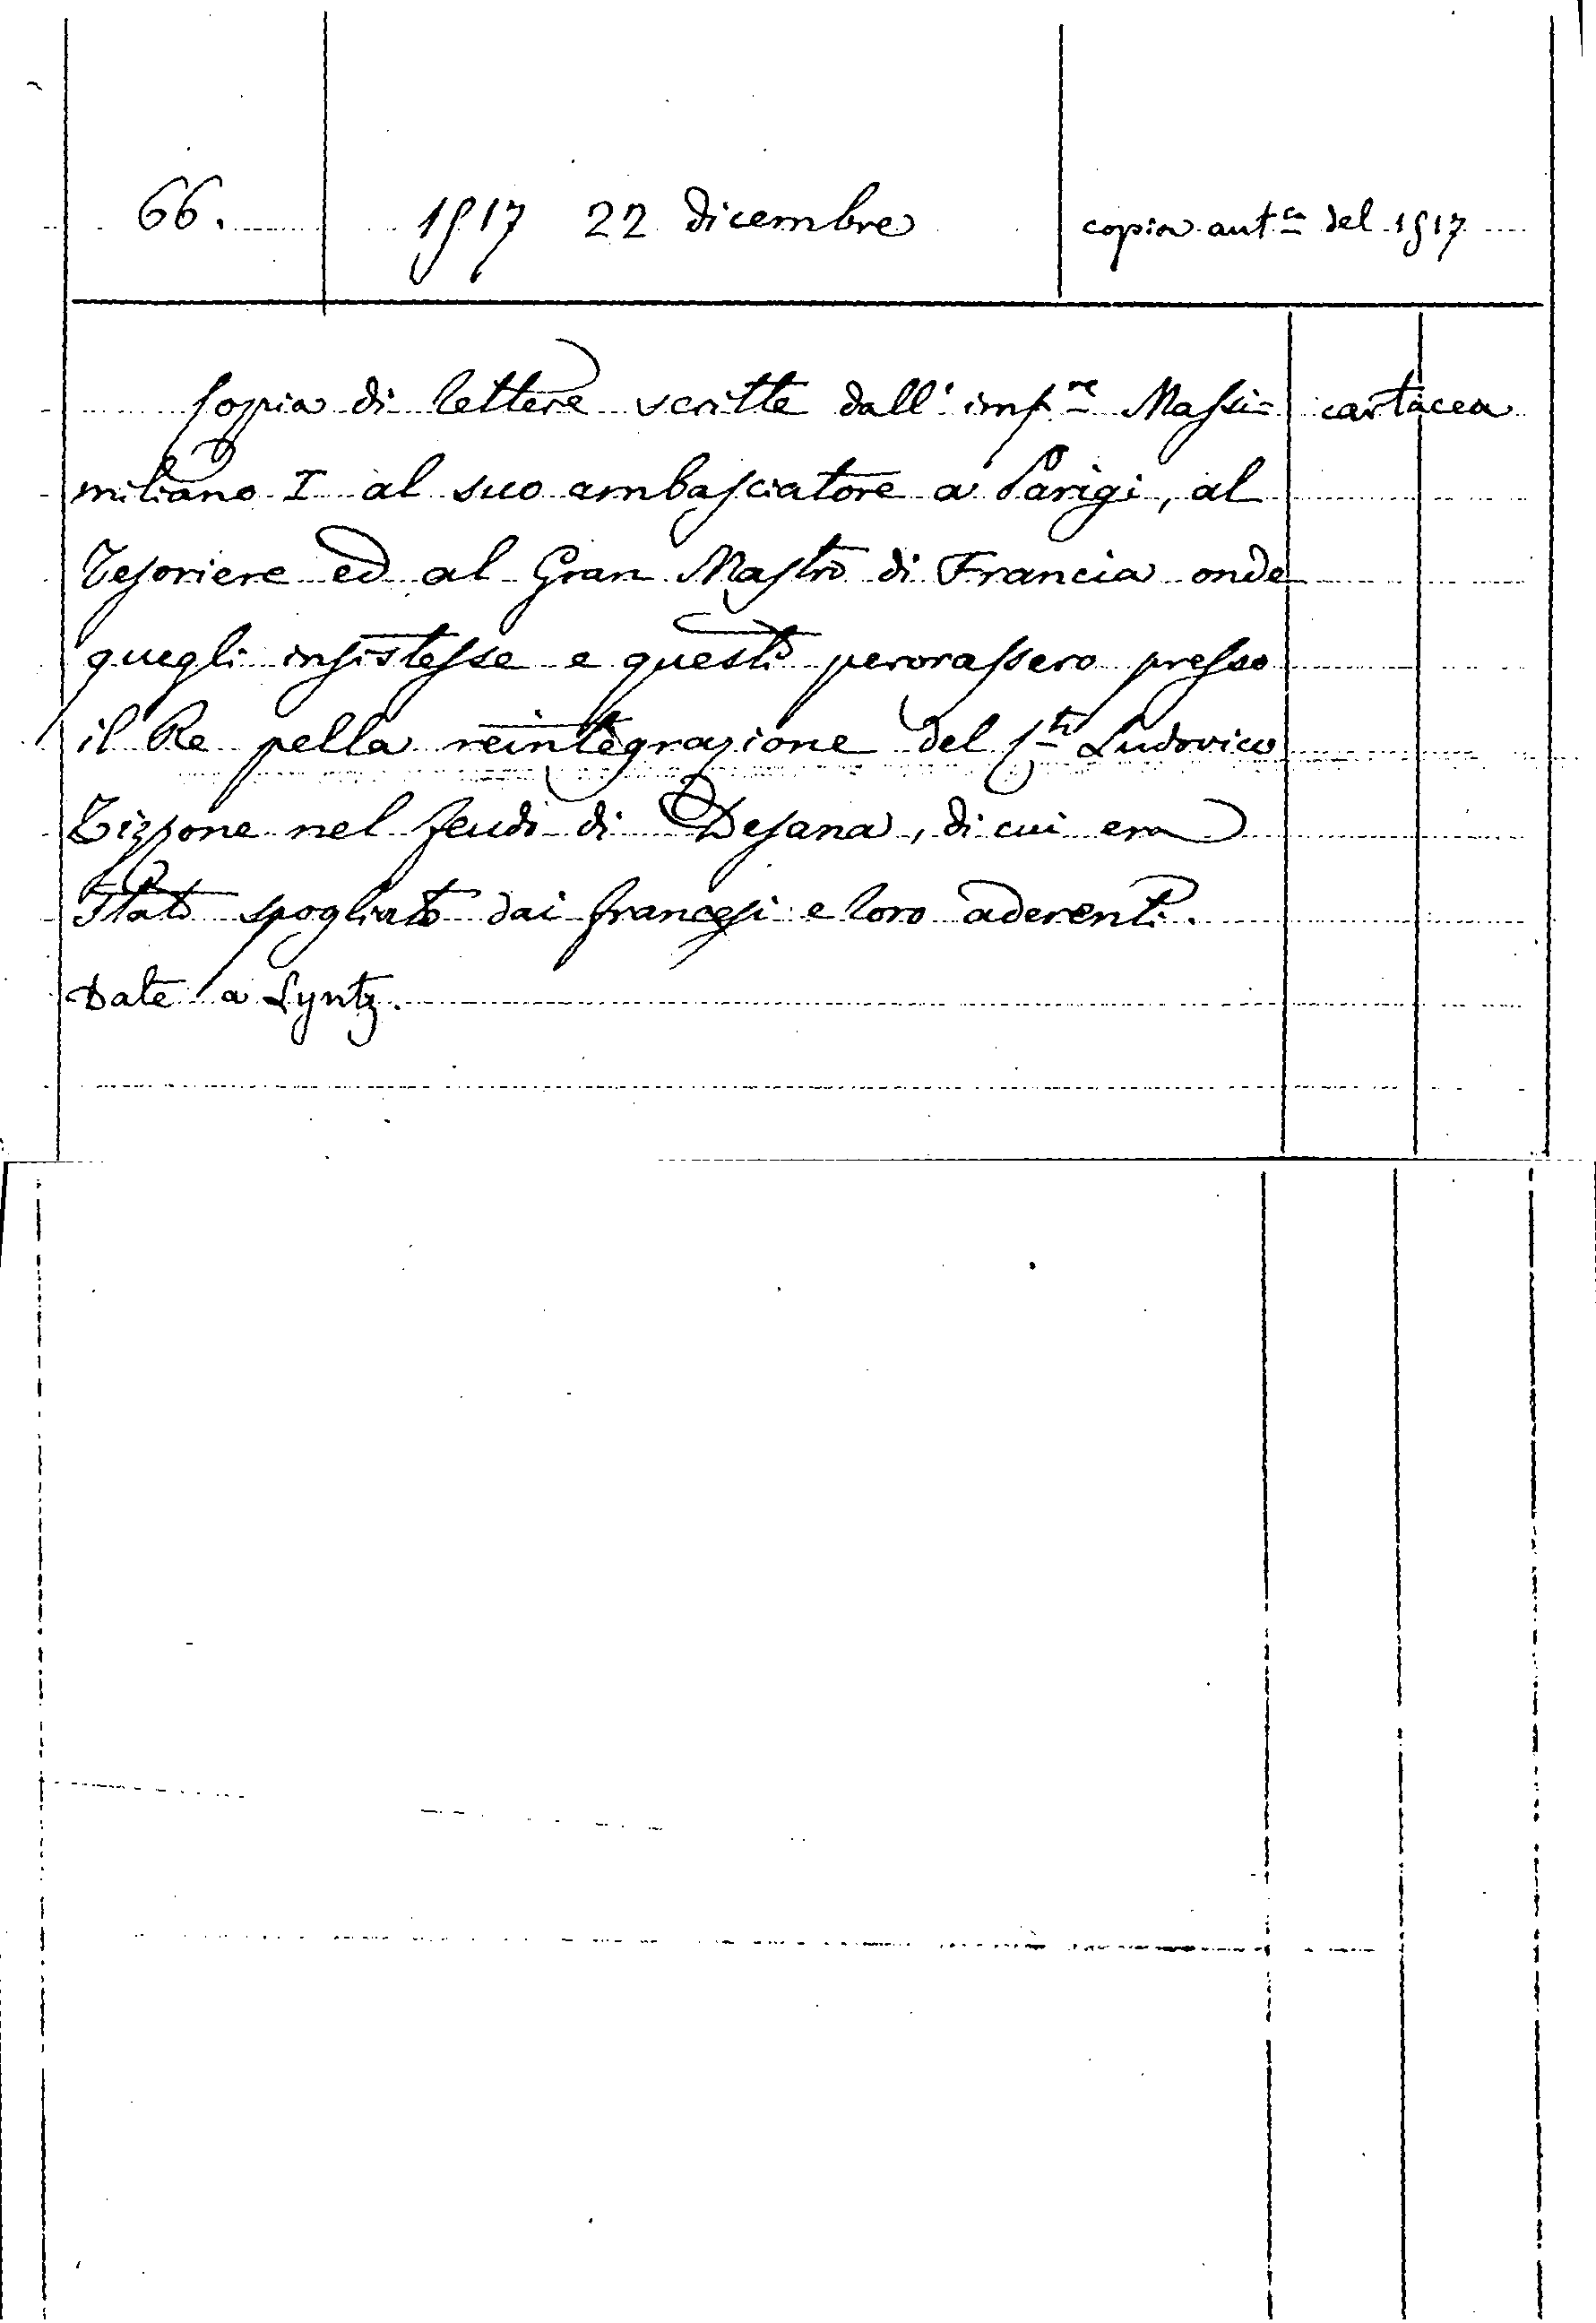 66. 1517 22 dicembre copia aut.ca del 1517
Copia di lettere scritte dall' imp.re Massi= cartacea
miliano I al suo ambasciatore a Parigi, al
Tesoriere ed al Gran Mastro di Francia onde
quegli insistesse e questi perorassero presso
il Re pella reintegrazione del C.te Ludovico
Tizzone nel feudo di Desana, di cui era
stato spogliato dai francesi e loro aderenti.
Date a Lyntz.